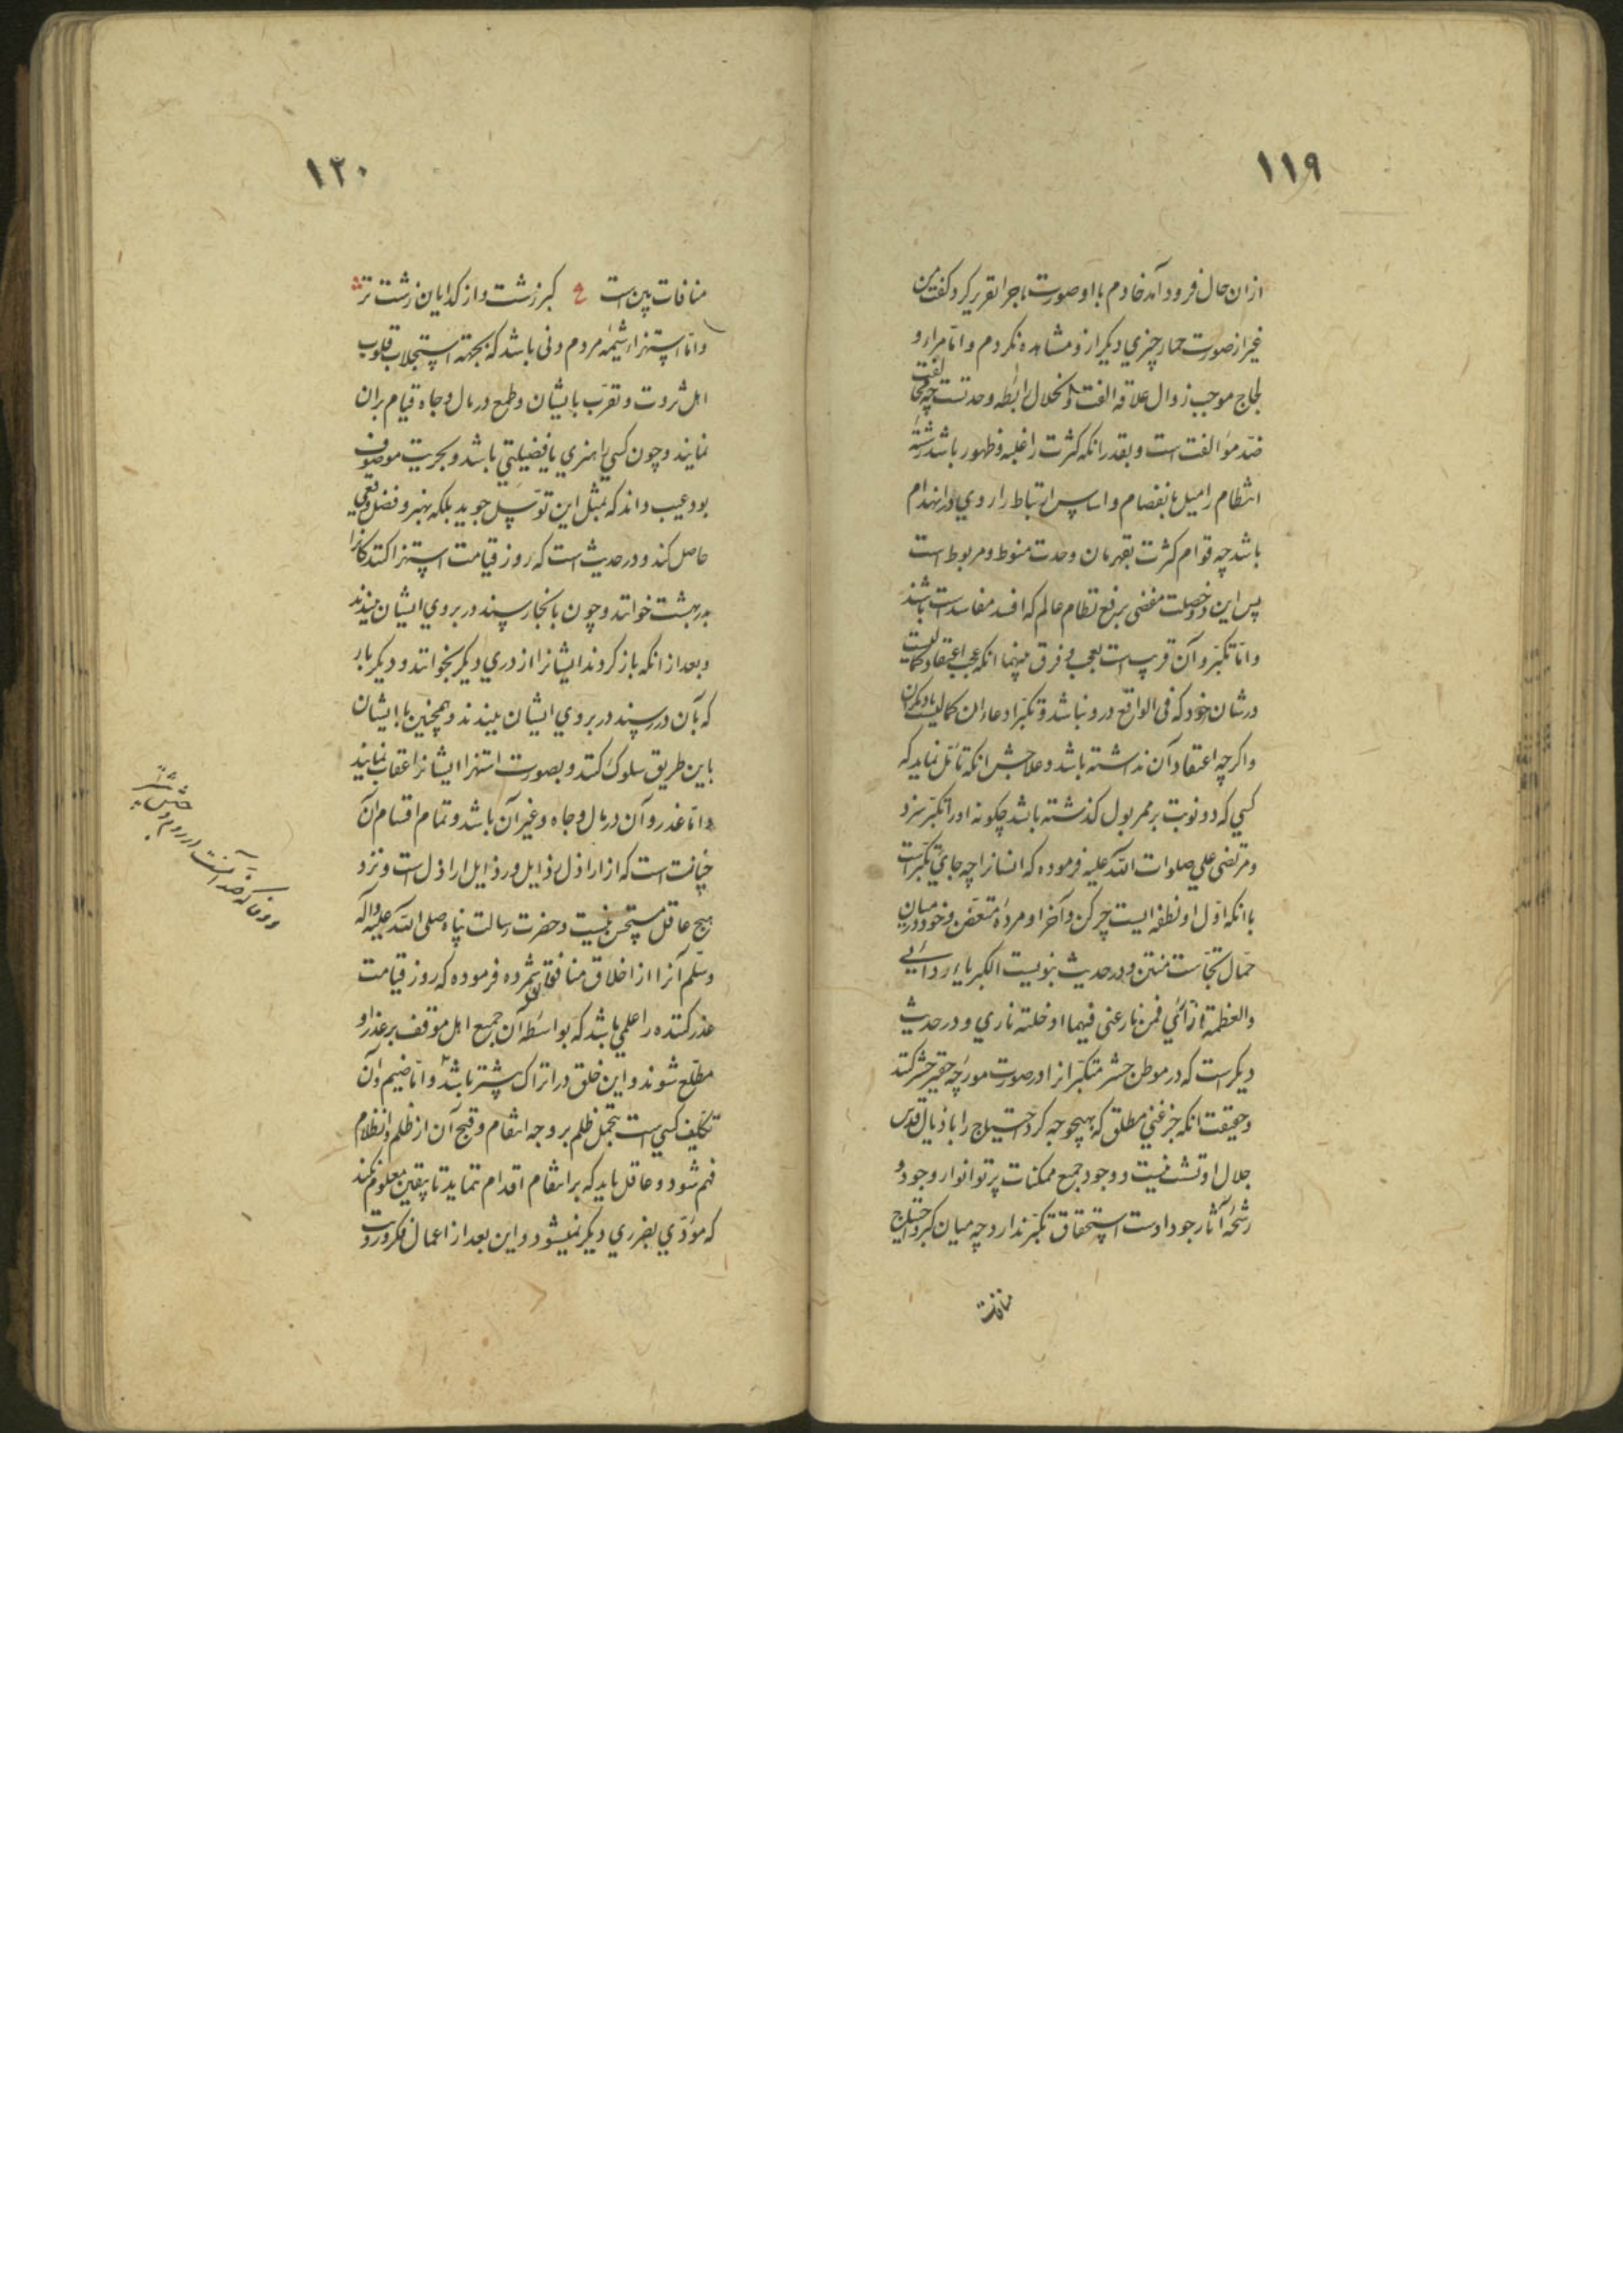 ١١٩
ازان حال فرود آمد خادم با او صورت ماجرا تقریر کرد گفت من
غیر از صورت حمار چیزی دیکر ازو مشاهده نکردم و امّا مراء و
لجاج موجب زوال علاقه الفت و انحلال رابطه وحدتست چه مخالفت
ضدّ موالفت است و بقدر انکه کثرت را غلبه و ظهور باشد رشتهٔ
انتظام را میل بانفصام و اساس ارتباط را روی در انهدام
باشد چه قوام کثرت بقهرمان وحدت منوط و مربوط است
پس این دو خصلت مفضی برفع نظام عالم که افسد مفاسد است باشند
و امّا تکبّر و آن قریب است بعجب و فرق بینهما انکه عجب اعتقاد کمالیست
در شان خود که فی الواقع درو نباشد و تکبّر ادعاء ان کمالیست با دیکران
و اکرچه اعتقاد آن نداشته باشد و علاجش انکه تامّل نماید که
کسی که دو نوبت بر ممر بول کذشته باشد چکونه او را تکبّر سزد
و مرتضی علی صلوات الله علیه فرموده که انسانرا چه جای تکبّر است
با انکه اوّل او نطفه ایست چرکن و آخر او مردهٔ متعفّن و خود در میان
حمّال نجاست منتن و در حدیث نبویست الکبریاء ردائی
والعظمة ازائی فمن نازعنی فیهما ادخلته ناری و در حدیث
دیکر است که در موطن حشر متکبّرانرا در صورت مورچه حقیر حشر کنند
و حقیقت انکه جز غنی مطلق که بهیچوجه کرد احتیاج را باذیال قدس
جلال او تشبث نیست و وجود جمیع ممکنات پرتو انوار وجود و
رشحهٔ آثار جود اوست استحقاق تکبّر ندارد چه میان کبر و احتیاج
منافات
١٢٠
منافات بین است ع کبر زشت و از کدایان زشت تر
و امّا استهزا شیمهٔ مردم دنی باشد که بجهة استجلاب قلوب
اهل ثروت و تقرّب بایشان و طمع در مال و جاه قیام بران
نمایند و چون کسی را هنری یا فضیلتی باشد و بحریت موصوف
بود عیب داند که بمثل این توسّل جوید بلکه بهنر و فضل وقعی
حاصل کند و در حدیث است که روز قیامت استهزا کنندکانرا
بدر بهشت خوانند و چون بانجا رسند در بروی ایشان ببندند
و بعد از انکه باز کردند ایشانرا از دری دیکر بخوانند و دیکر بار
که بآن در رسند در بروی ایشان ببندند و همچنین با ایشان
باین طریق سلوک کنند و بصورت استهزا ایشانرا عقاب نمایند
و امّا غدر و آن در مال و جاه و غیر آن باشد و تمام اقسام آن
خیانت است که از اراذل رذایل و رذایل اراذل است و نزد
هیچ عاقل مستحسن نیست و حضرت رسالت پناه صلی الله علیه و آله
وسلّم آنرا از اخلاق منافقان شمرده فرموده که روز قیامت
غدر کننده را علمی باشد که بواسطه آن جمیع اهل موقف بر غدر او
مطلع شوند و این خلق در اتراک بیشتر باشد و امّا ضیم و آن
تکلیف کسی است بتحمل ظلم بر وجه انتقام و قبح آن از ظلم و انظلام
فهم شود و عاقل باید که بر انتقام اقدام ننماید تا بیقین معلوم نکند
که مؤدّی بضرری دیکر نمیشود و این بعد از اعمال فکر و رویت
و وفا که ضد آنست در روم و حبش بیشتر